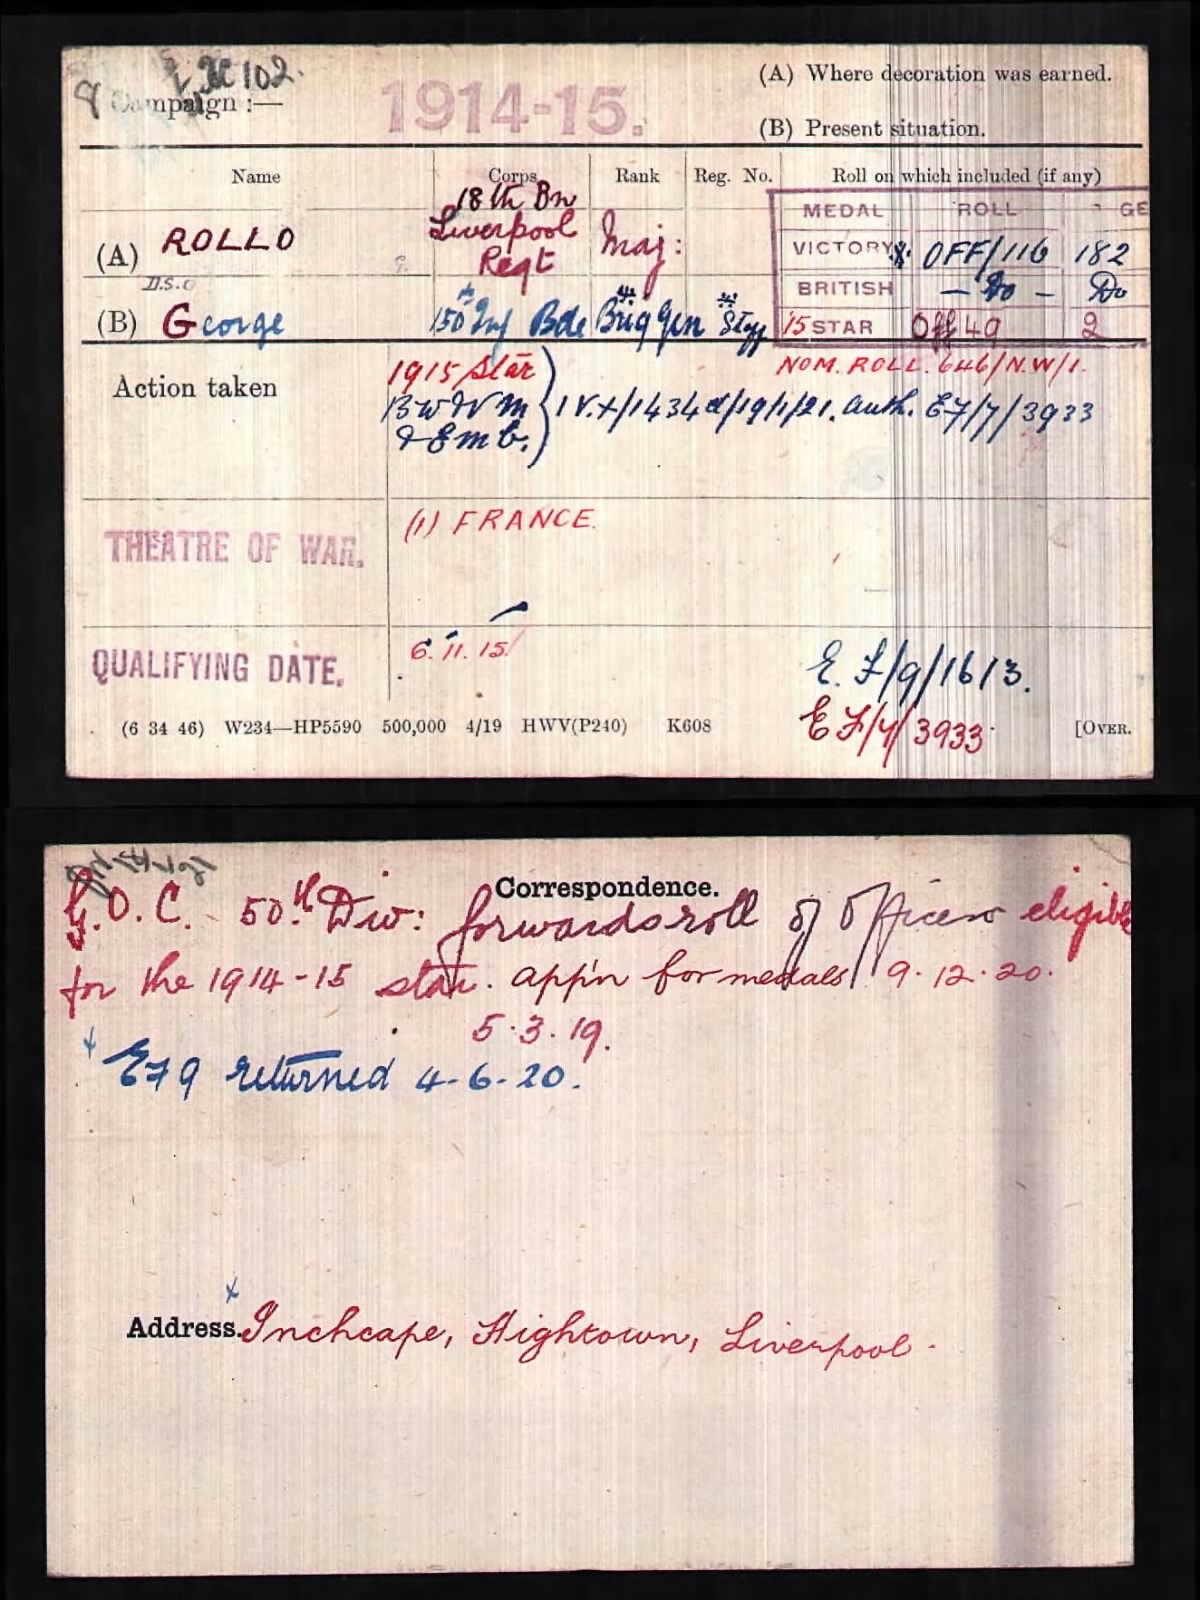 (A) Where decoration was earned.
Campaign :— 1914-15.
(B) Present situation.
Name Corps Rank Reg. No. Roll on which included (if any)
18th Bn
(A) ROLLO Liverpool Regt Maj:
D.S.O
(B) George 150 Inf Bde Brig Gen Staff
MEDAL ROLL GE
VICTORY OFF/116 182
BRITISH — Do — Do
'15 STAR Off 49 2
Action taken
1915 Star NOM. ROLL. 646/N.W/1.
BW & V M I V.X/1434 d/19/1/21. auth. EF/7/3933
& Emb.
THEATRE OF WAR. (1) FRANCE.
QUALIFYING DATE. 6.11.15.
E.F/9/1613.
(6 34 46) W234—HP5590 500,000 4/19 HWV(P240) K608 EF/7/3933 [OVER.
Correspondence.
G.O.C. 50th Div: forwards roll of Officers eligible
for the 1914-15 star. app'n for medals 9.12.20.
5.3.19.
x EF9 returned 4-6-20.
x
Address. Inchcape, Hightown, Liverpool.